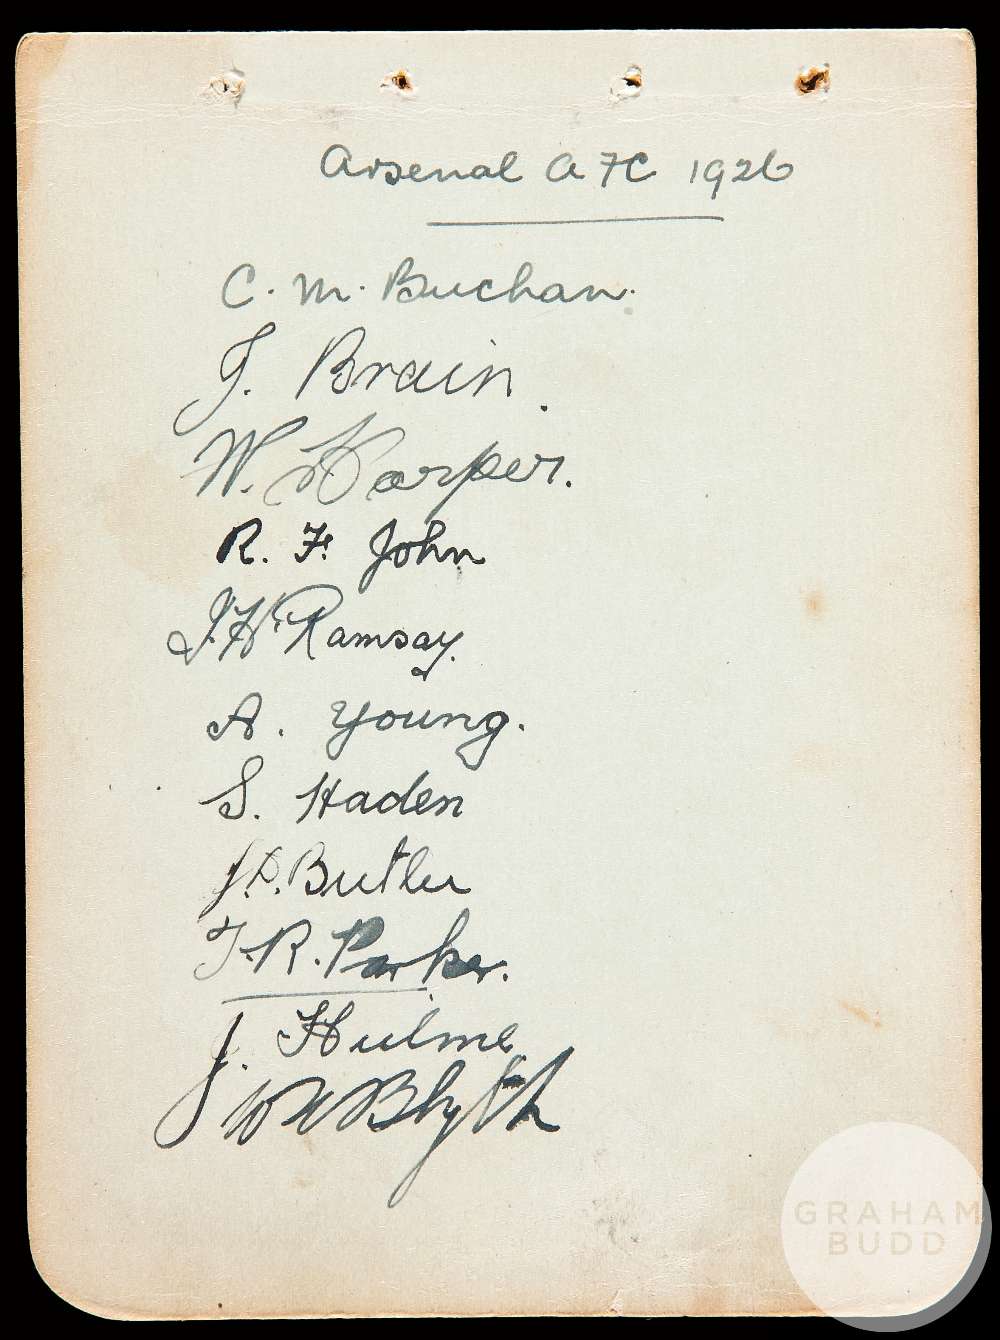 Arsenal A F C 1926
C. M. Buchan.
J. Brain.
W. Harper.
R. F. John
J. H. Ramsay.
A. Young.
S. Haden
J. D. Butler
T. R. Parker.
J. Hulme
W N Blyth
GRAHAM
BUDD